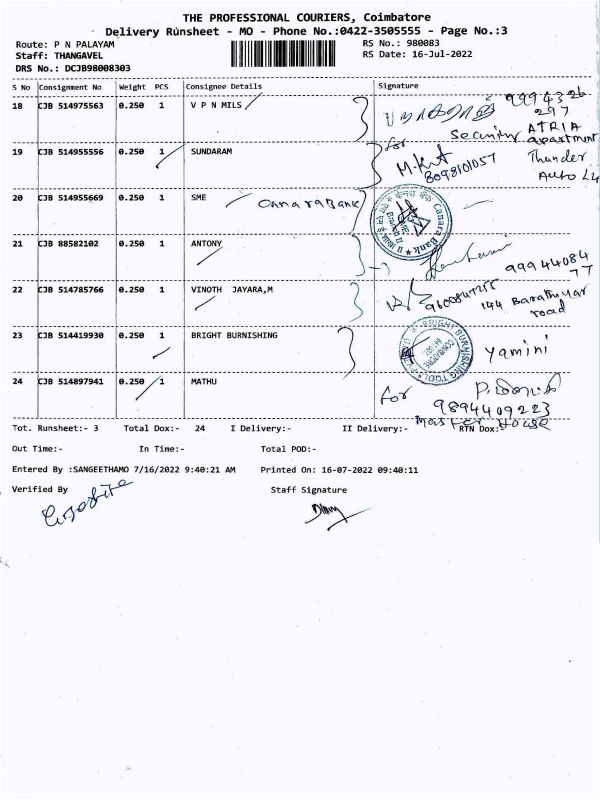 THE PROFESSIONAL COURIERS, Coimbatore
Delivery Runsheet - MO - Phone No.:0422-3505555 - Page No.:3
Route: P N PALAYAM RS No.: 980083
Staff: THANGAVEL RS Date: 16-Jul-2022
DRS No.: DCJB98008303
S No Consignment No Weight PCS Consignee Details Signature
18 CJB 514975563 0.250 1 V P N MILS
9994326
297
for Security ATRIA
apartment
19 CJB 514955556 0.250 1 SUNDARAM
8098101057
Thunder
Auto L4
20 CJB 514955669 0.250 1 SME Canara Bank
Canara Bank
21 CJB 88582102 0.250 1 ANTONY
99944084
77
22 CJB 514785766 0.250 1 VINOTH JAYARA,M
9600847255
144 Barathiyar
road
23 CJB 514419930 0.250 1 BRIGHT BURNISHING
BRIGHT BURNISHING TOOL
yamini
24 CJB 514897941 0.250 1 MATHU
for
9894409223
Master House
Tot. Runsheet:- 3 Total Dox:- 24 I Delivery:- II Delivery:- RTN Dox:-
Out Time:- In Time:- Total POD:-
Entered By :SANGEETHAMO 7/16/2022 9:40:21 AM Printed On: 16-07-2022 09:40:11
Verified By Staff Signature